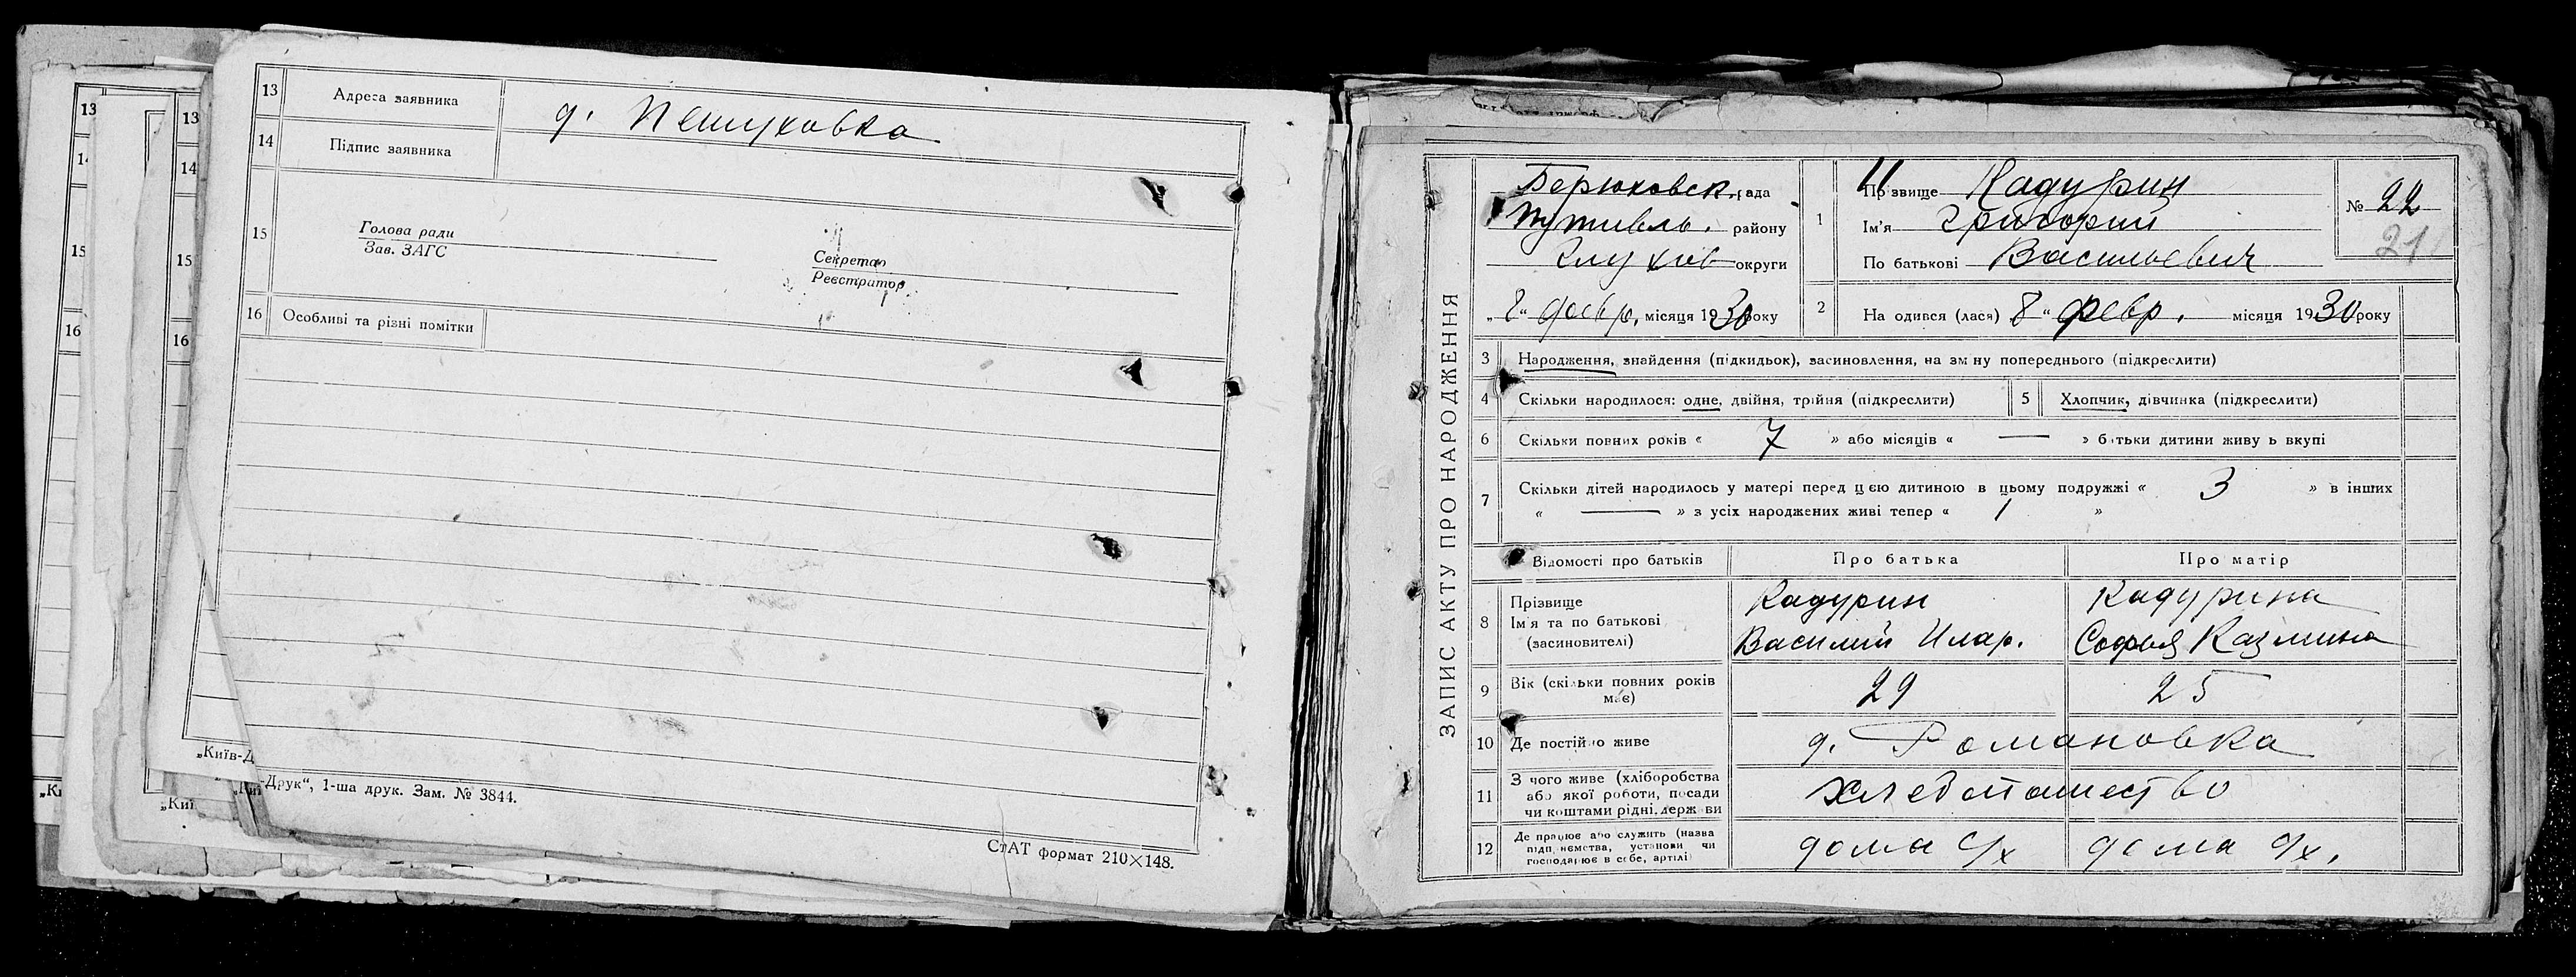 13 Адреса заявника д. Пешуховка
14 Підпис заявника
15 Голова ради
Зав. ЗАГС
Секретар
Реєстратор
16 Особливі та різні помітки
13
14
15
16
13
14
15
16
„Київ-Д
-Друк“, 1-ша друк. Зам. № 3844.
СтАТ формат 210×148.
ЗАПИС АКТУ ПРО НАРОДЖЕННЯ
Берюховск. рада
Путивль. району
Глухов округи
„8“ февр. місяця 1930 року
1 Прізвище Кадурин
Ім'я Григорий
По батькові Васильевич
№ 22
21
2 На одився (лася) 8 “ февр. місяця 1930 року
3 Народження, знайдення (підкидьок), засиновлення, на зм ну попереднього (підкреслити)
4 Скільки народилося: одне, двійня, трійня (підкреслити)
5 Хлопчик, дівчинка (підкреслити)
6 Скільки повних років « 7 » або місяців « — » батьки дитини живу ь вкупі
7 Скільки дітей народилось у матері перед цією дитиною в цьому подружжі « 3 » в інших
« — » з усіх народжених живі тепер « 1 »
Відомості про батьків Про батька Про матір
8 Прізвище
Ім'я та по батькові
(засиновителі)
Кадурин
Василий Илар.
Кадурина
Софья Казмина
9 Вік (скільки повних років
має)
29 25
10 Де постійно живе д. Романовка
11 З чого живе (хліборобства
або якої роботи, посади
чи коштами рідні, держави
хлебопашество
12 Де працює або служить (назва
підп иємства, установи чи
господарює в себе, артілі)
дома с/х дома с/х.